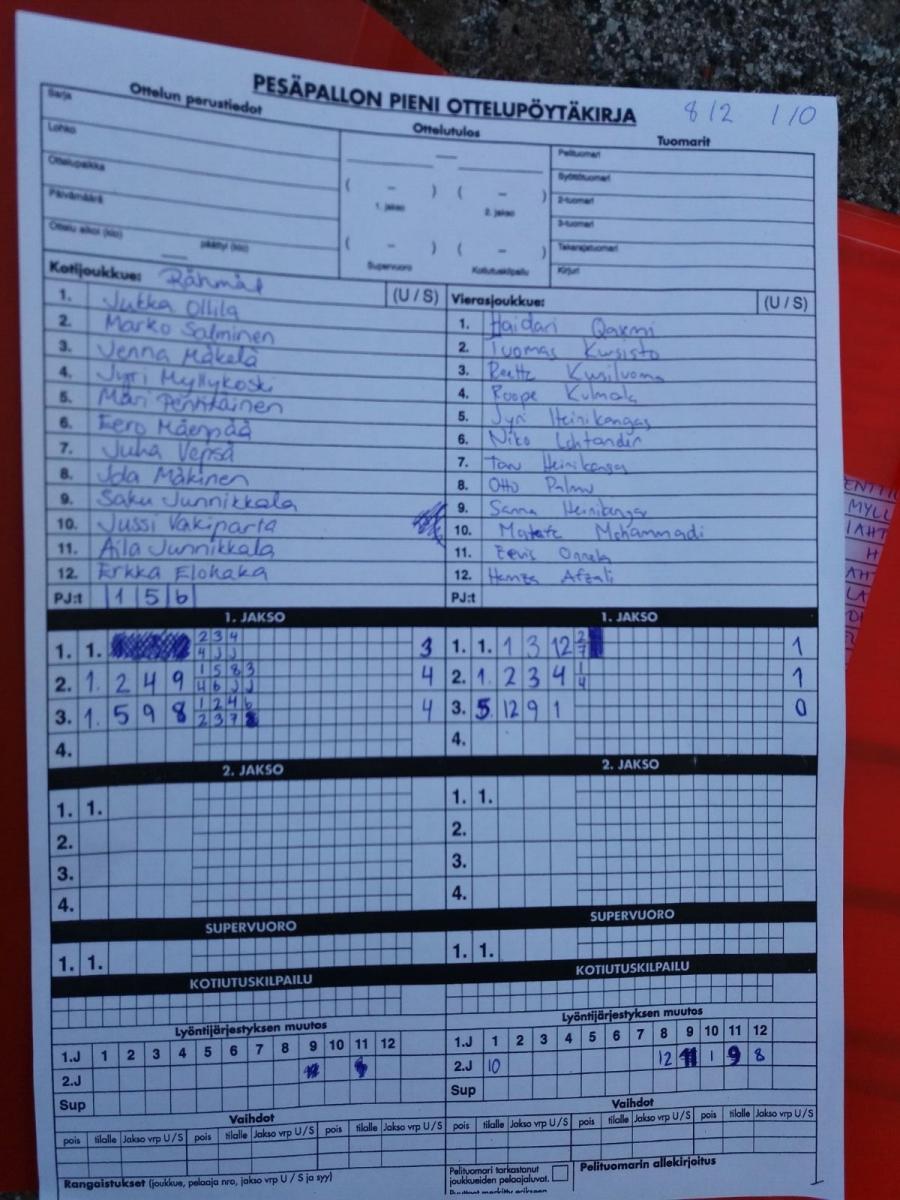 PESÄPALLON PIENI OTTELUPÖYTÄKIRJA 8/2 1/0
Ottelun perustiedot Ottelutulos Tuomarit
Sarja
Lohko
Ottelupaikka
Päivämäärä
Ottelu alkoi (klo) päättyi (klo)
( – ) ( – )
1. jakso 2. jakso
( – ) ( – )
Supervuoro Kotiutuskilpailu
Pelituomari
Syöttötuomari
2-tuomari
3-tuomari
Takarajatuomari
Kirjuri
Kotijoukkue: Råhmåt (U / S)
1. Jukka Ollila
2. Marko Salminen
3. Jenna Mäkelä
4. Jyri Myllykoski
5. Mari Penttinen
6. Eero Mäenpää
7. Juha Vepsä
8. Ida Mäkinen
9. Saku Junnikkala
10. Jussi Vakiparta
11. Aila Junnikkala
12. Erkka Elohaka
PJ:t 1 5 6
Vierasjoukkue: (U / S)
1. Haidari Qaxmi
2. Tuomas Kursisto
3. Reetta Kusiluoma
4. Roope Kulmala
5. Jyri Heinikangas
6. Niko Lehtander
7. Heinikangas
8. Otto Palmu
9. Sanna Heinikangas
10. Mohammadi
11. Eevis Onnela
12. Hamza Afzali
PJ:t
1. JAKSO
1. 1. 2 3 4 3
4 J J
2. 1. 2 4 9 1 5 8 3 4
4 6 J J
3. 1. 5 9 8 1 2 4 6 4
2 3 7
4.
1. JAKSO
1. 1. 1 3 12 2 1
7
2. 1. 2 3 4 1 1
4
3. 5. 12 9 1 0
4.
2. JAKSO
1. 1.
2.
3.
4.
2. JAKSO
1. 1.
2.
3.
4.
SUPERVUORO
1. 1.
SUPERVUORO
1. 1.
KOTIUTUSKILPAILU
KOTIUTUSKILPAILU
Lyöntijärjestyksen muutos
1.J 1 2 3 4 5 6 7 8 9 10 11 12
2.J
Sup
Lyöntijärjestyksen muutos
1.J 1 2 3 4 5 6 7 8 9 10 11 12
2.J 10 12 11 1 9 8
Sup
Vaihdot
pois tilalle Jakso vrp U / S pois tilalle Jakso vrp U / S pois tilalle Jakso vrp U / S
Vaihdot
pois tilalle Jakso vrp U / S pois tilalle Jakso vrp U / S pois tilalle Jakso vrp U / S
Rangaistukset (joukkue, pelaaja nro, jakso vrp U / S ja syy)
Pelituomari tarkastanut
joukkueiden pelaajaluvat.
Pelituomarin allekirjoitus